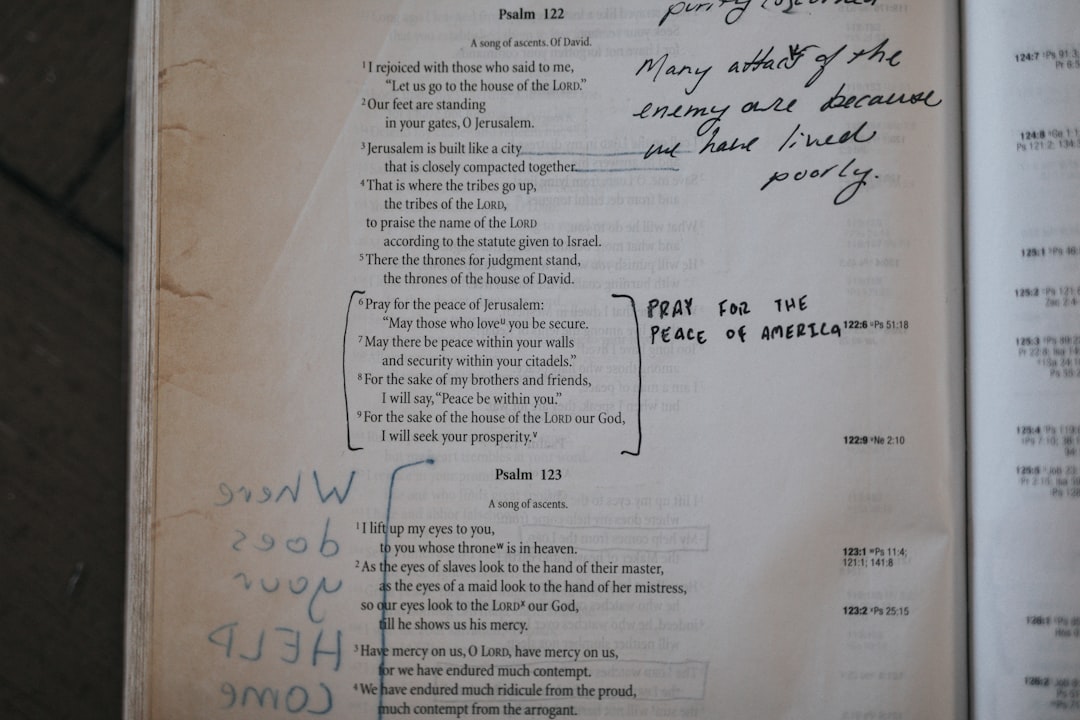 Psalm 122
A song of ascents. Of David.
1 I rejoiced with those who said to me,
"Let us go to the house of the LORD."
2 Our feet are standing
in your gates, O Jerusalem.
3 Jerusalem is built like a city
that is closely compacted together.
4 That is where the tribes go up,
the tribes of the LORD,
to praise the name of the LORD
according to the statute given to Israel.
5 There the thrones for judgment stand,
the thrones of the house of David.
6 Pray for the peace of Jerusalem:
"May those who love u you be secure.
7 May there be peace within your walls
and security within your citadels."
8 For the sake of my brothers and friends,
I will say, "Peace be within you."
9 For the sake of the house of the LORD our God,
I will seek your prosperity. v
Many attack of the
enemy are because
we have lived
poorly.
PRAY FOR THE
PEACE OF AMERICA
122:6 u Ps 51:18
122:9 v Ne 2:10
Psalm 123
A song of ascents.
1 I lift up my eyes to you,
to you whose throne w is in heaven.
2 As the eyes of slaves look to the hand of their master,
as the eyes of a maid look to the hand of her mistress,
so our eyes look to the LORD x our God,
till he shows us his mercy.
3 Have mercy on us, O LORD, have mercy on us,
for we have endured much contempt.
4 We have endured much ridicule from the proud,
much contempt from the arrogant.
123:1 w Ps 11:4;
121:1; 141:8
123:2 x Ps 25:15
Where
does
your
HELP
come
124:7
124:8
125:1
125:2
125:3
125:4
125:5
126:1
126:2